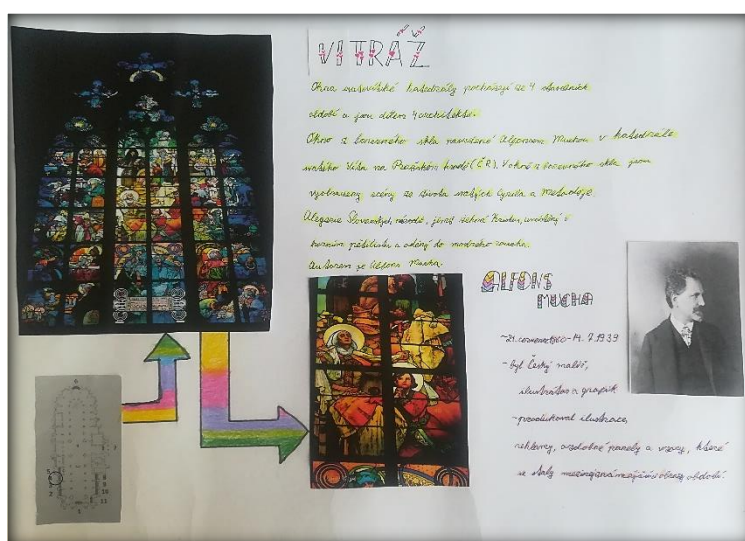 VITRÁŽ
Okna svatovítské katedrály pocházejí ze 4 stavebních
období a jsou dílem 4 architektů.
Okno z barevného skla navržené Alfonsem Muchou v katedrále
svatého Víta na Pražském hradě (ČR). V okně z barevného skla jsou
vyobrazeny scény ze života svatých Cyrila a Metoděje.
Alegorie Slovanských národů, jimž žehná Kristus, umístěný v
horním a oděný do modrého roucha.
Autorem je Alfons Mucha.
ALFONS
MUCHA
~24. července 1860 - 14. 7. 1939
~ byl český malíř,
ilustrátor a grafik
~ produkoval ilustrace,
reklamy, ozdobné panely a vzory, které
se staly obrazy období.